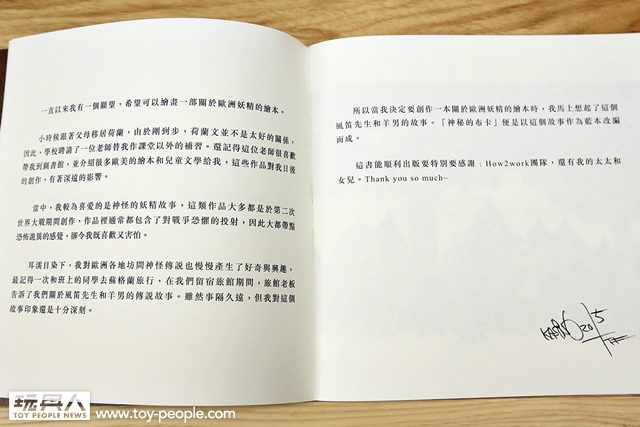 一直以來我有一個願望，希望可以繪畫一部關於歐洲妖精的繪本。
小時候跟著父母移居荷蘭，由於剛到步，荷蘭文並不是太好的關係，
因此，學校聘請了一位老師替我作課堂以外的補習。還記得這位老師很喜歡
帶我到圖書館，並介紹很多歐美的繪本和兒童文學給我，這些作品對我日後
的創作，有著深遠的影響。
當中，我較為喜愛的是神怪的妖精故事，這類作品大多都是於第二次
世界大戰期間創作，作品裡通常都包含了對戰爭恐懼的投射，因此大都帶點
恐怖詭異的感覺，卻令我既喜歡又害怕。
耳濡目染下，我對歐洲各地坊間神怪傳說也慢慢產生了好奇與興趣，
最記得一次和班上的同學去蘇格蘭旅行，在我們留宿旅館期間，旅館老板
告訴了我們關於風笛先生和羊男的傳說故事。雖然事隔久遠，但我對這個
故事印象還是十分深刻。
所以當我決定要創作一本關於歐洲妖精的繪本時，我馬上想起了這個
風笛先生和羊男的故事。「神秘的布卡」便是以這個故事作為藍本改編
而成。
這書能順利出版要特別要感謝：How2work團隊，還有我的太太和
女兒。Thank you so much~
2015
玩具人
TOY PEOPLE NEWS
www.toy-people.com